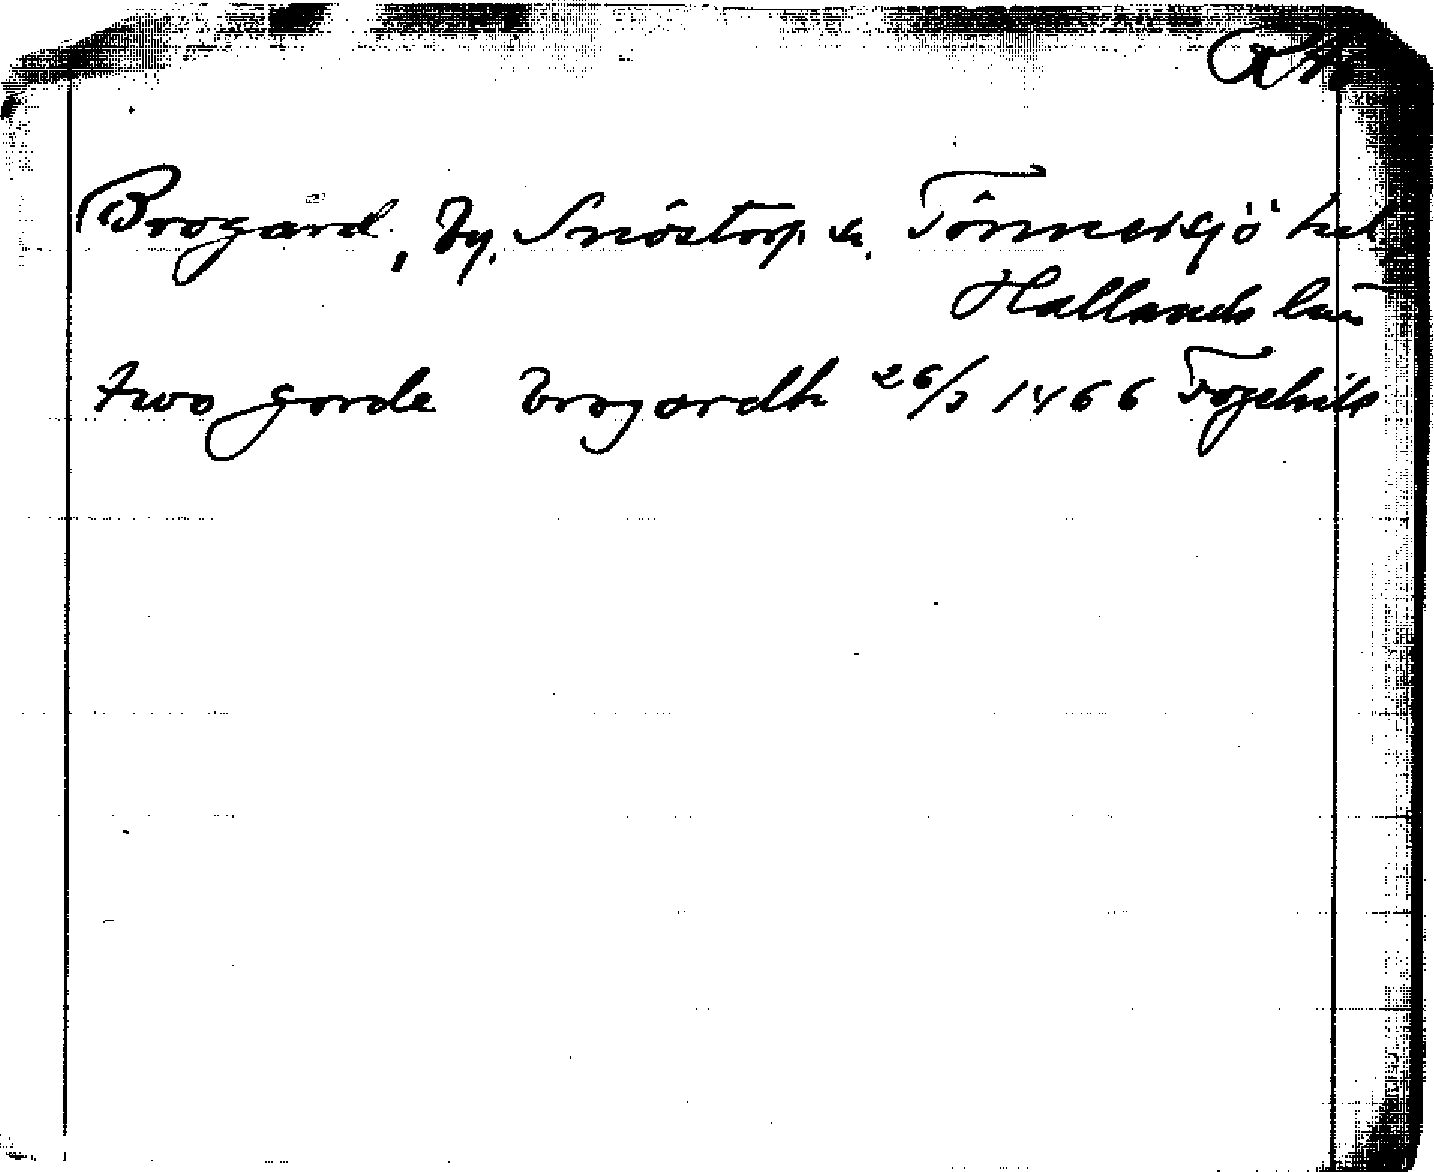 Brogård, by, Snöstorp sn. Tönnersjö hd
Hallands län
two gorde brogardh 26/3 1466 Fogelvik